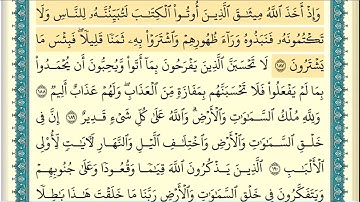 وَإِذْ أَخَذَ ٱللَّهُ مِيثَٰقَ ٱلَّذِينَ أُوتُوا۟ ٱلْكِتَٰبَ لَتُبَيِّنُنَّهُۥ لِلنَّاسِ وَلَا
تَكْتُمُونَهُۥ فَنَبَذُوهُ وَرَآءَ ظُهُورِهِمْ وَٱشْتَرَوْا۟ بِهِۦ ثَمَنًا قَلِيلًا ۖ فَبِئْسَ مَا
يَشْتَرُونَ ١٨٧ لَا تَحْسَبَنَّ ٱلَّذِينَ يَفْرَحُونَ بِمَآ أَتَوا۟ وَّيُحِبُّونَ أَن يُحْمَدُوا۟
بِمَا لَمْ يَفْعَلُوا۟ فَلَا تَحْسَبَنَّهُم بِمَفَازَةٍ مِّنَ ٱلْعَذَابِ ۖ وَلَهُمْ عَذَابٌ أَلِيمٌ ١٨٨
وَلِلَّهِ مُلْكُ ٱلسَّمَٰوَٰتِ وَٱلْأَرْضِ ۗ وَٱللَّهُ عَلَىٰ كُلِّ شَىْءٍ قَدِيرٌ ١٨٩ إِنَّ فِى
خَلْقِ ٱلسَّمَٰوَٰتِ وَٱلْأَرْضِ وَٱخْتِلَٰفِ ٱلَّيْلِ وَٱلنَّهَارِ لَـَٔايَٰتٍ لِّأُو۟لِى
ٱلْأَلْبَٰبِ ١٩٠ ٱلَّذِينَ يَذْكُرُونَ ٱللَّهَ قِيَٰمًا وَقُعُودًا وَعَلَىٰ جُنُوبِهِمْ
وَيَتَفَكَّرُونَ فِى خَلْقِ ٱلسَّمَٰوَٰتِ وَٱلْأَرْضِ رَبَّنَا مَا خَلَقْتَ هَٰذَا بَٰطِلًا